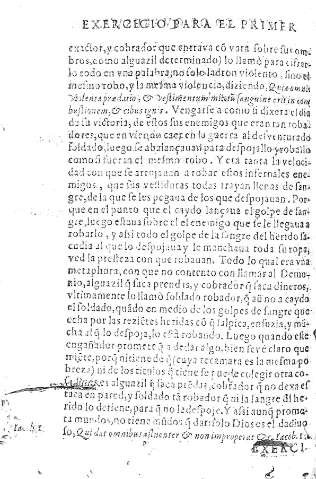 EXERCICIO PARA EL PRIMER
exactor, y cobrador que esperava cõ vara sobre sus om-
bros, como alguazil determinado) lo llamò para cifrar-
lo todo en vna palabra, no solo ladron violento, sino el
mesmo robo, y la mesma violencia, diziendo, Quia omnis
violenta prædatio, & vestimentum mixtũ sanguine erit in com
bustionem, & cibus ignis. Vengarse à como si dixera el dia
de su victoria, de vllos sus enemigos que eran tan roba
dores, que en viendo caer en la guerra al desventurado
soldado, luego se abalançauan para despojallo y roballo
como si fueran el mesmo robo. Y era tanta la veloci-
dad con que se arrojauan a robar estos infernales ene-
migos, que sus vestiduras todas trayan llenas de san-
gre, de la que se les pegaua de los que despojauan. Por
que en el punto que el caydo lançaua el golpe de san-
gre, luego estaua sobre el el enemigo que se le llegaua a
robarlo, y ahi todo el golpe de la sangre del herido sa-
cudia al que lo despojaua y le manchaua toda su ropa,
ved la presteza con que robauan. Todo lo qual era vna
metaphora, con que no contento con llamar al Demo-
nio, alguazil q̃ saca prendas, y cobrador q̃ saca dineros,
vltimamente lo llamò soldado robador, q̃ aũ no a caydo
el soldado, quãdo en medio de los golpes de sangre que
echa por las rezientes heridas cõ q̃ salpica, ensuzia, y mã-
cha al q̃ lo despoja, lo està robando. Luego quando este
engañador promete q̃ a de dar algo, bien se vè claro que
miẽte, por q̃ ni tiene de q̃ (cuya recamara es la mesma po-
breza) ni de los titulos q̃ tiene se puede colegir otra co-
sa, si es alguazil q̃ saca prẽdas, cobrador q̃ no dexa es
taca en pared, y soldado tã robador q̃ ni la sangre dl he
rido lo detiene, para q̃ no la despoje. Y assi aunq̃ prome
ta mundos, no tiene mũdos q̃ dar: solo Dios es el dadiuo
so, Qui dat omnibus affluenter & non improperat &c. Iacob. 1.
Iacob. 1.
EXERCI-